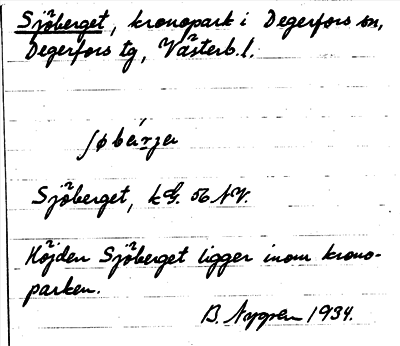 Sjöberget, kronopark i Degerfors sn,
Degerfors tg, Västerb. l.
Sjöberget, kG. 56 NV.
Höjden Sjöberget ligger inom krono-
parken.
B. Nygren 1934.